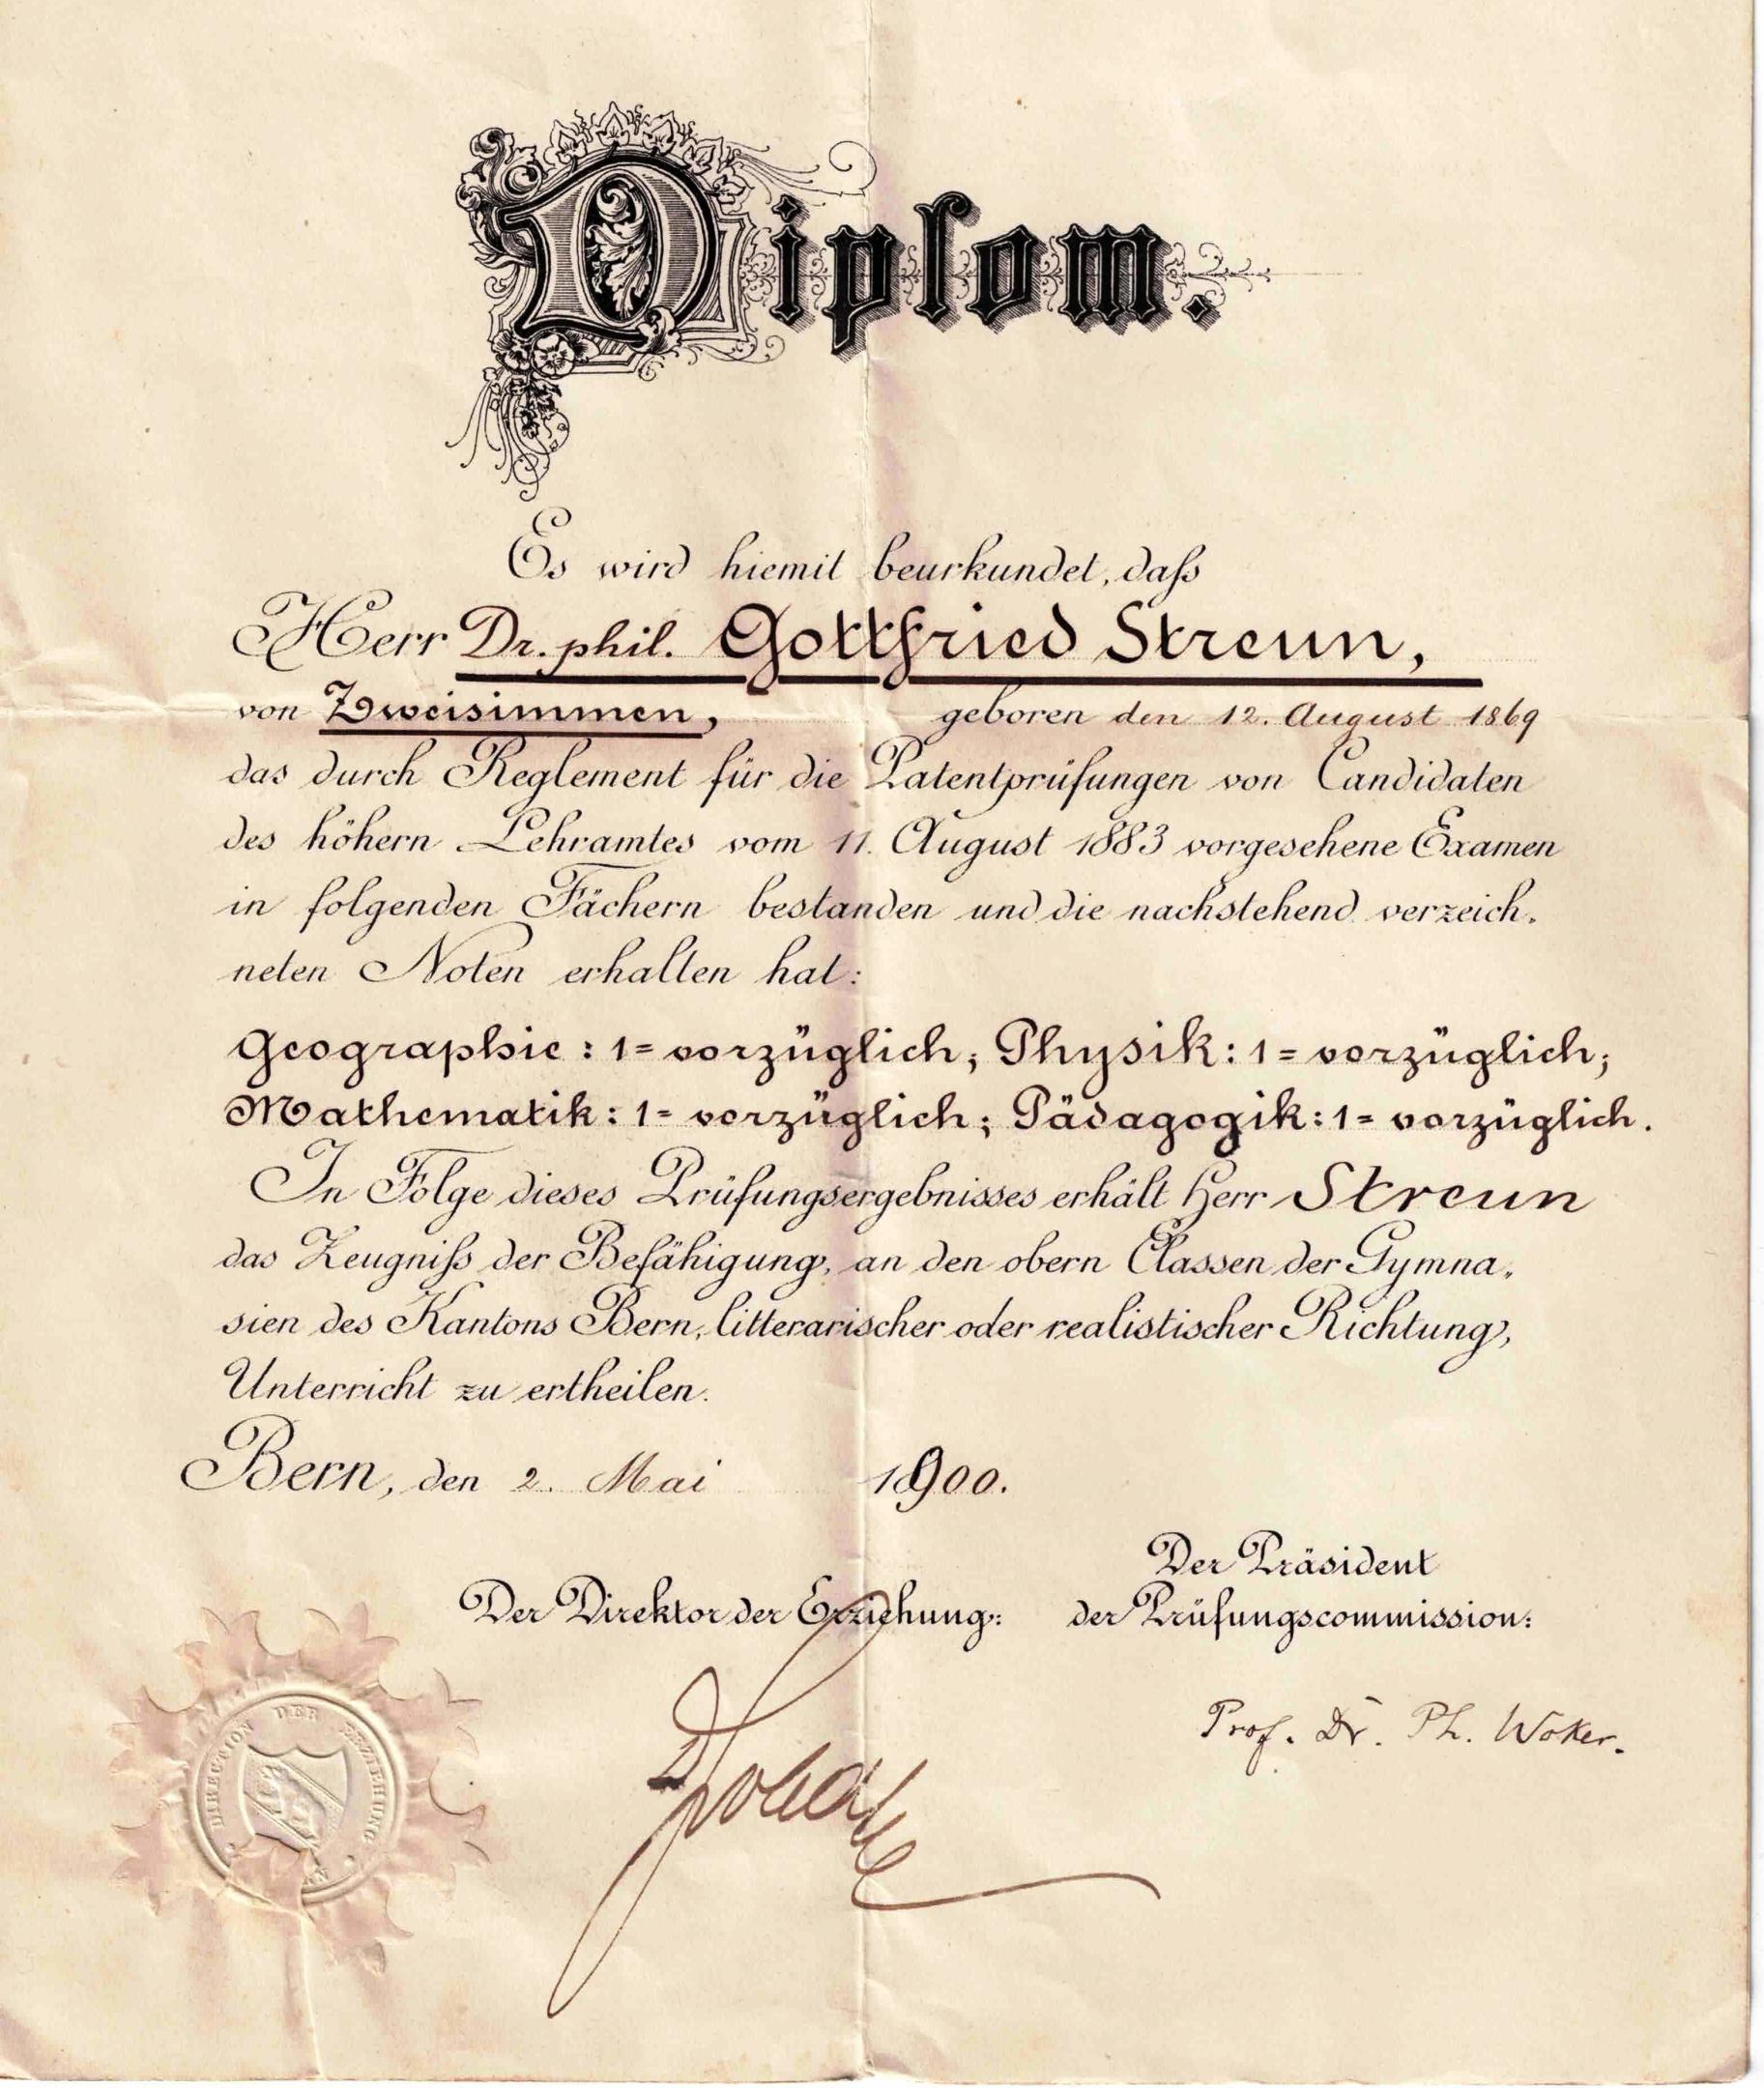 Diplom.
Es wird hiemit beurkundet, daſs
Herr Dr. phil. Gottfried Streun,
von Zweisimmen, geboren den 12. August 1869
das durch Reglement für die Patentprüfungen von Candidaten
des höhern Lehramtes vom 11. August 1883 vorgesehene Examen
in folgenden Fächern bestanden und die nachstehend verzeich-
neten Noten erhalten hat:
Geographie: 1= vorzüglich; Physik: 1= vorzüglich;
Mathematik: 1= vorzüglich; Pädagogik: 1= vorzüglich.
In Folge dieses Prüfungsergebnisses erhält Herr Streun
das Zeugniſs der Befähigung, an den obern Classen der Gymna-
sien des Kantons Bern, litterarischer oder realistischer Richtung,
Unterricht zu ertheilen.
Bern, den 2. Mai 1900.
Der Präsident
Der Direktor der Erziehung: der Prüfungscommission:
Prof. Dr. Ph. Woker.
DIRECTION DER ERZIEHUNG